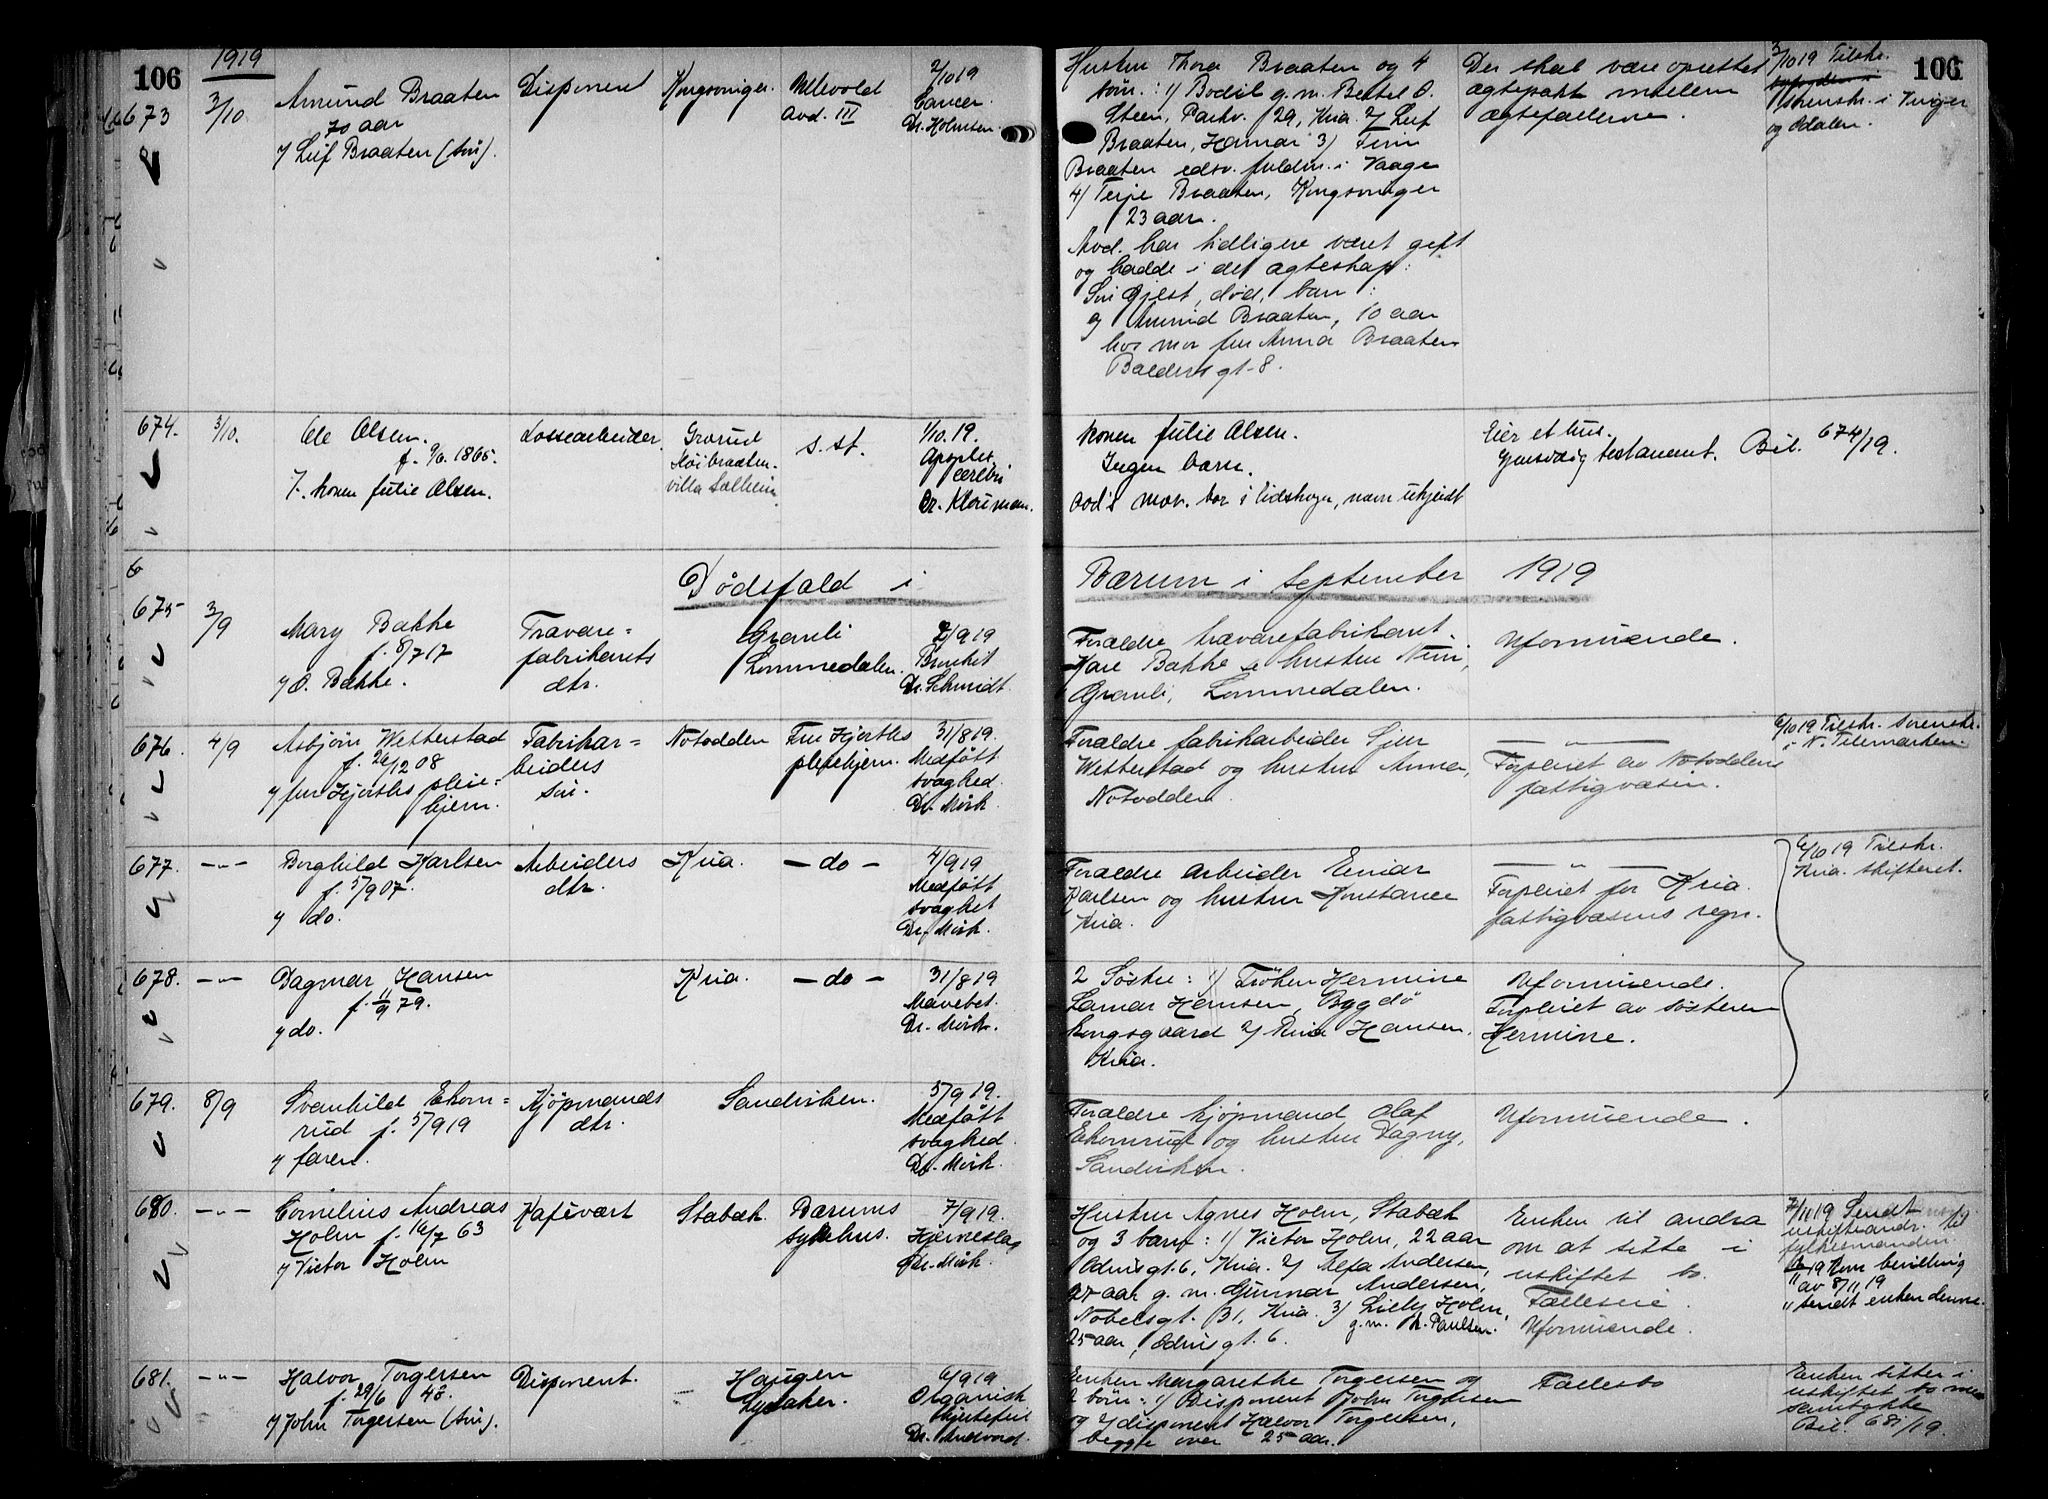 106
1919
673
3/10
Amund Braaten
70 aar
v/ Leif Braaten (søn).
Disponent
Kongsvinger.
Ullevold
avd. III
2/10 19
Cancer.
Dr. Holmsen.
Hustru Thora Braaten og 4
børn: 1) Bodil g.m. Bertel O.
Steen, Parkv. 29, Kria. 2/ Leif
Braaten, Hamar 3) Finn
Braaten edsv. fuldm. i Vaage
4/ Terje Braaten, Kongsvinger
23 aar.
Avd. har tidligere været gift
og hadde i det ægteskap:
Søn Gjest, død, barn:
Amund Braaten, 10 aar
hos mor fru Anna Braaten
Baldersgt. 8.
Der skal være oprettet
ægtepakt mellem
ægtefællerne.
3/10 19 Tilskr.
sorenskr. i Vinger
og Odalen.
106
674.
3/10.
Ole Olsen.
f. 9/6. 1865.
v. konen Julie Olsen.
Lossearbeider.
Grorud
Høibraaten.
villa Solheim
s. st.
1/10. 19.
Apoplex.
cerebri
Dr. Klouman.
Konen Julie Olsen.
Ingen barn.
avd's mor. bor i Eidskoger, navn ukjendt
Eier et hus.
Gjensidig testament. Bil. 674/19.
6
Dødsfald i
Bærum i September 1919
675
3/9
Mary Bakke
f. 8/7 17
v/ O. Bakke.
Trævare=
fabrikants
dtr.
Granli
Lommedalen.
2/9 19
Bronkit
Dr. Schmidt.
Forældre trævarefabrikant
Kare Bakke og hustru Nini,
Granli, Lommedalen.
Uformuende.
676.
4/9
Asbjørn Wetterstad
f. 26/12 08
v/ fru Hjorths pleie=
hjem.
Fabrikar=
beiders
søn.
Notodden
Fru Hjorths
pleiehjem.
31/8 19.
Medfødt
svaghed.
Dr. Mørk.
Forældre fabrikarbeider Sjur
Wetterstad og hustru Anna,
Notodden.
— " —
Forpleiet av Notoddens
fattigvæsen.
6/10 19 Tilskr. sorenskr.
i N. Telemarken.
677.
— " —
Borghild Karlsen
f. 5/9 07.
v/ do.
Arbeiders
dtr.
Kria.
— do —
4/9 19
Medfødt
svaghet
Dr. Mørk.
Forældre arbeider Einar
Karlsen og hustru Konstance
Kria.
— " —
Forpleiet for Kria.
fattigvæsens regn.
6/10 19 Tilskr.
Kria. skifteret.
678.
— " —
Dagmar Hansen
f. 11/9 79.
v/ do.
Kria.
— do —
31/8 19
Mavebet.
Dr. Mørk.
2 Søstre: 1) Frøken Hermine
Hansen, Bygdø
kongsgaard 2/ Hansen,
Kria.
Uformuende.
Forpleiet av søsteren
Hermine.
679.
8/9
Svanhild Ekorn=
rud f. 5/9 19
v/ faren.
Kjøpmands
dtr.
Sandviken.
5/9 19.
Medfødt
svaghed.
Dr. Mørk.
Forældre kjøpmand Olaf
Ekornrud og hustru Dagny,
Sandviken.
Uformuende.
680.
— " —
Cornelius Andreas
Holm f. 16/7 63
v/ Victor Holm
Kafévært
Stabæk.
Bærums
sykehus.
7/9 19.
Hjerneslag
Dr. Mørk.
Hustru Agnes Holm, Stabæk
og 3 barn: 1) Victor Holm, 22 aar
Odinsgt. 6, Kria. 2/ Alfa Andersen,
27 aar g. m. Gunnar Andersen,
Nobelsgt. 31, Kria. 3) Lilly Holm
g.m. Paulsen.
25 aar, Odinsgt. 6.
Enken vil andra
om at sitte i
uskiftet bo.
Fælleseie.
Uformuende.
7/11 19 Sendt
uskifteandr. til
fylkesmanden
Kom bevilling
av 8/11 19
" sendt enken denne.
681.
— " —
Halvor Torgersen
f. 29/6 48.
v/ John Torgersen (søn).
Disponent.
Haugen
Lysaker.
6/9 19
Organisk
hjertefeil
Dr. Andvord.
Enken Margarethe Torgersen og
2 børn: 1) Disponent John Torgersen
og 2/ disponent Halvor Torgersen,
begge over 25 aar.
Fællesbo
Enken sitter i
uskiftet bo med
samtykke
Bil. 681/19.